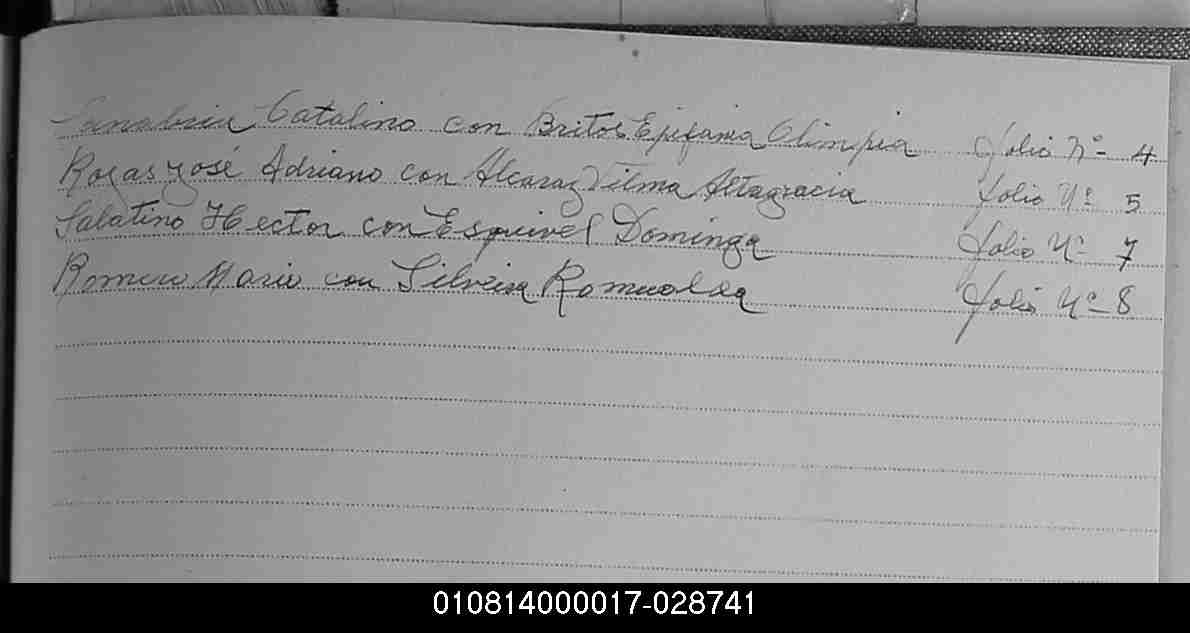 Sanabria Catalino con Britos Epifania Olimpia folio Nº 4
Rozas José Adriano con Alcaraz Vilma Altagracia folio Nº 5
Sabatino Hector con Esquivel Dominga folio Nº 7
Romero Mario con Silveira Romualda folio Nº 8
010814000017-028741